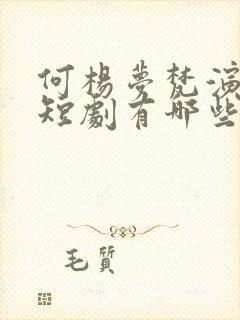 何楊夢梵演
短劇有哪些
毛質